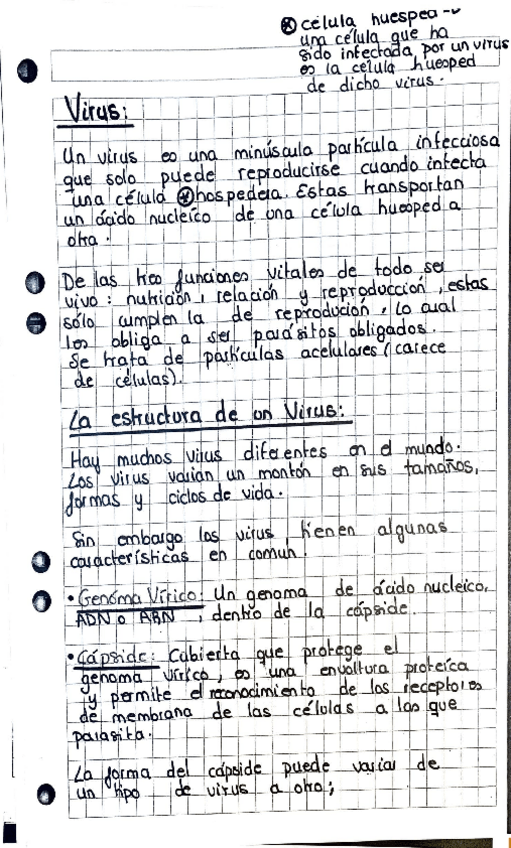 ⊛ célula huesped →
una célula que ha
sido infectada, por un virus
es la celula huesped
de dicho virus.
Virus:
Un virus es una minúscula partícula infecciosa
que solo puede reproducirse cuando infecta
una célula ⊛hospedera. Estas transportan
un ácido nucleíco de una célula huesped a
otra.
De las tres funciones vitales de todo ser
vivo: nutrición, relación y reproducción, estas
sólo cumplen la de reprodución, lo cual
los obliga a ser parásitos obligados.
Se trata de partículas acelulares (carece
de células).
La estructura de un Virus:
Hay muchos virus diferentes en el mundo.
Los virus varían un montón en sus tamaños,
formas y ciclos de vida.
Sin embargo los virus tienen algunas
características en comun.
• Genóma Vírico: Un genoma de ácido nucleico,
ADN o ARN, dentro de la cápside.
• Cápside: Cabierta que protege el
genoma vírico, es una envoltura proteíca
y permite el reconocimiento de los receptores
de membrana de las células a las que
parasita.
La forma del cápside puede variar de
un tipo de virus a otro;